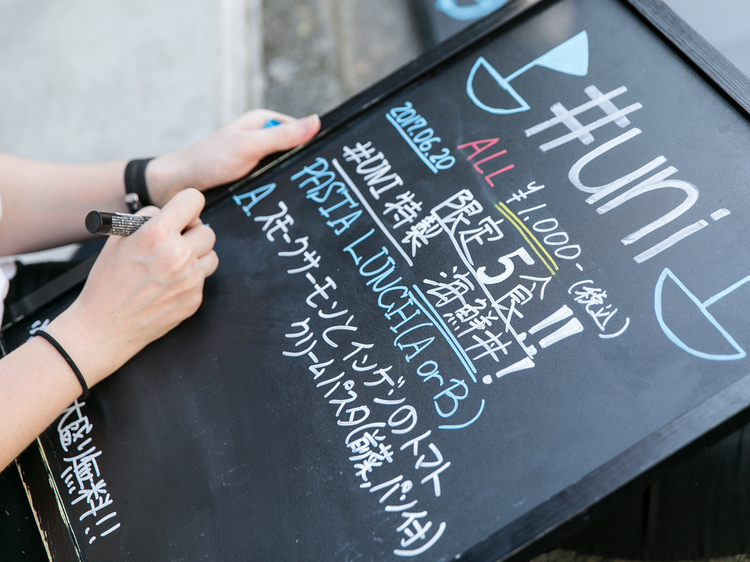 #uni
2017.06.20
ALL ¥1.000-(税込)
限定5食!!
#UNI 特製 海鮮丼!
PASTA LUNCH(A or B)
A.スモークサーモンとインゲンのトマト
クリームパスタ(前菜,パン付)
大盛り無料!!